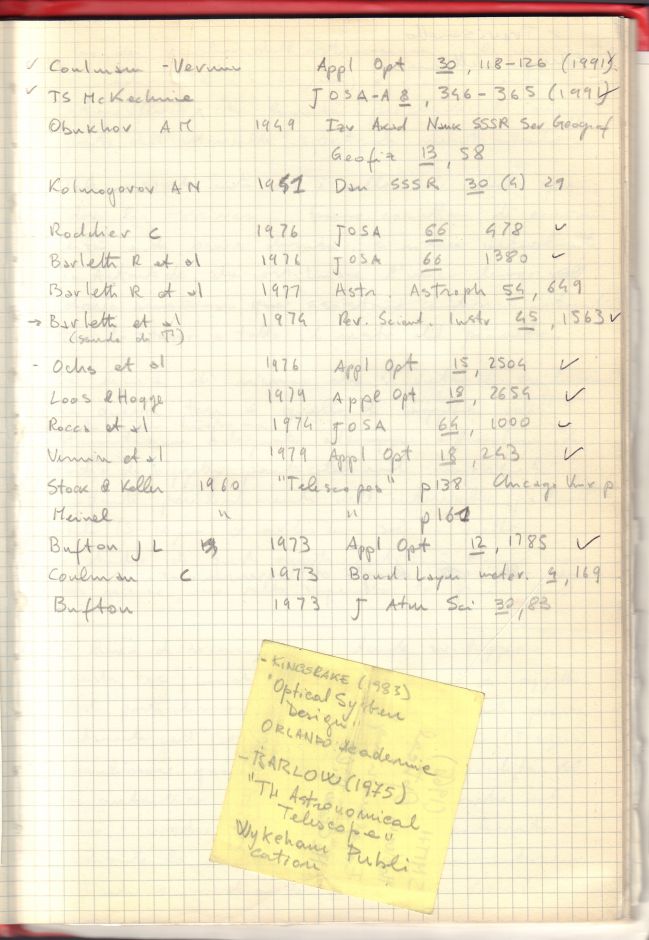 ✓ Coulman - Vernin Appl Opt 30, 118-126 (1991).
✓ TS McKechnie JOSA-A 8, 346-365 (1991) ✓
Obukhov AM 1949 Izv Akad Nauk SSSR Ser Geograf
Geofiz 13, 58
Kolmogorov AN 1941 Dan SSSR 30 (4) 29
Roddier C 1976 JOSA 66 478 ✓
Barletti R et al 1976 JOSA 66 1380 ✓
Barletti R et al 1977 Astr. Astroph 54, 649
→ Barletti et al 1974 Rev. Scient. Instr 45, 1563 ✓
(sonda di T)
- Ochs et al 1976 Appl Opt 15, 2504 ✓
Loos & Hogge 1979 Appl Opt 18, 2654 ✓
Rocca et al 1974 JOSA 64, 1000 ✓
Vernin et al 1979 Appl Opt 18, 243 ✓
Stock & Keller 1960 "Telescopes" p138 Chicago Univ p
Meinel " " p 161
Bufton J L 1973 Appl Opt 12, 1785 ✓
Coulman C 1973 Bound. Layer meteor. 4, 169
Bufton 1973 J Atm Sci 30, 83
- KINGSLAKE (1983)
"Optical System
Design"
ORLANDO Academic
- BARLOW (1975)
"TH Astronomical
Telescope"
Wykeham Publi
cation